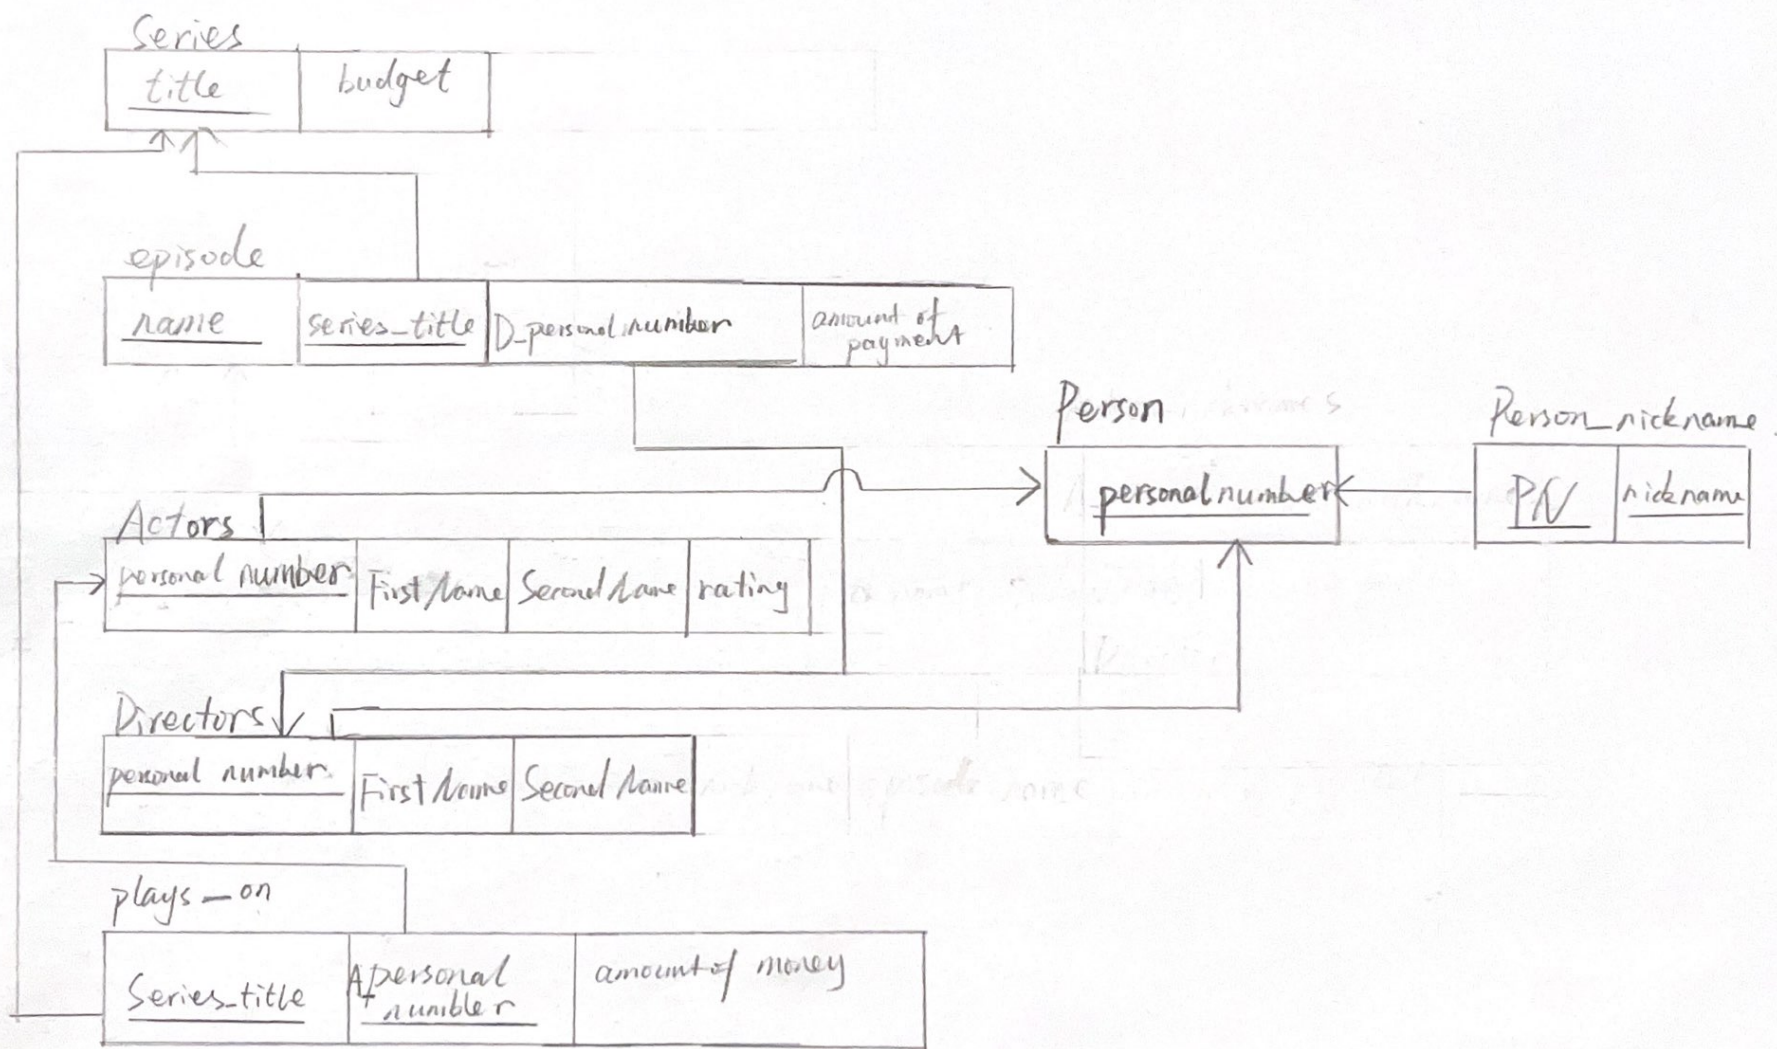 Series
title budget
episode
name series_title D_personal number amount of
payment
Person Person_nickname
personal number PN nickname
Actors
personal number First Name Second Name rating
Directors
personal number First Name Second Name
plays_on
Series_title A_personal
number amount of money